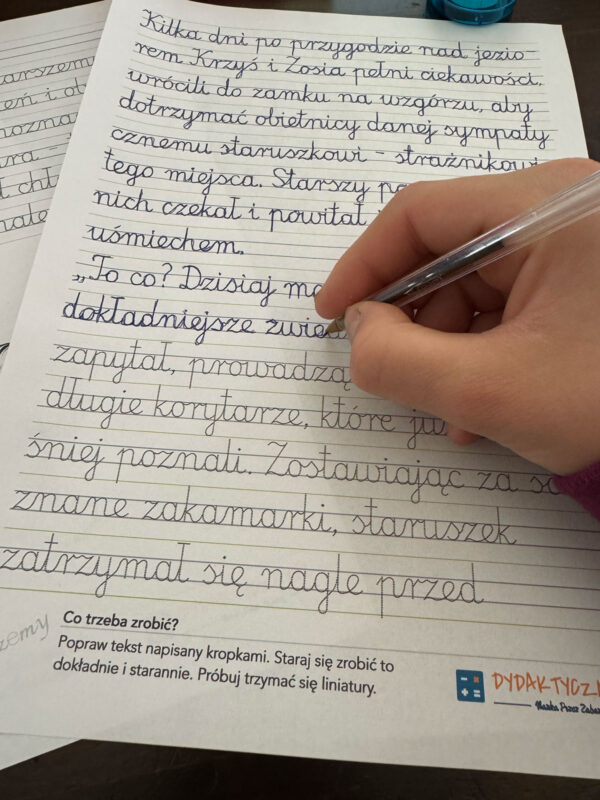 Kilka dni po przygodzie nad jezio-
rem Krzyś i Zosia pełni ciekawości,
wrócili do zamku na wzgórzu, aby
dotrzymać obietnicy danej sympaty
cznemu staruszkowi - strażnikowi
tego miejsca. Starszy
nich czekał i powitał
uśmiechem.
„To co? Dzisiaj
dokładniejsze
zapytał,
długie korytarze, które
śniej poznali. Zostawiając za
znane zakamarki, staruszek
zatrzymał się nagle przed
Co trzeba zrobić?
Popraw tekst napisany kropkami. Staraj się zrobić to
dokładnie i starannie. Próbuj trzymać się liniatury.
Nauka Przez